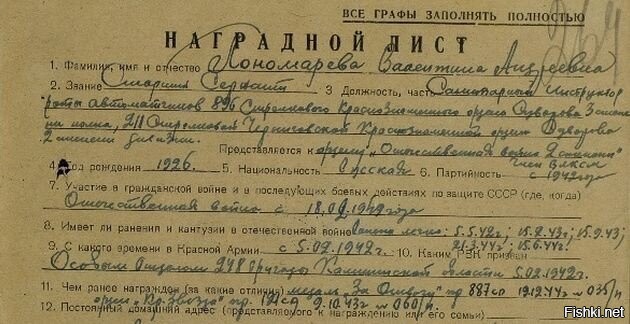 ВСЕ ГРАФЫ ЗАПОЛНЯТЬ ПОЛНОСТЬЮ
НАГРАДНОЙ ЛИСТ
1. Фамилия, имя и отчество Пономарева Валентина Андреевна
2. Звание Старший Сержант 3 Должность, часть Санитарный Инструктор
роты автоматчиков 896 Стрелкового Краснознаменного ордена Суворова 3 степе
ни полка, 211 Стрелковой Черниговской Краснознаменной ордена Суворова
2 степени дивизии.
Представляется к ордену "Отечественная война 2 степени"
член ВЛКСМ
4. Год рождения 1926. 5. Национальность Русская 6. Партийность с 1942 года
7. Участие в гражданской войне и в последующих боевых действиях по защите СССР (где, когда)
Отечественная война с
8. Имеет ли ранения и контузии в отечественной войне ранена легко: 5.5.42г; 15.2.43г; 15.9.43;
21.3.44г; 15.6.44г.
9. С какого времени в Красной Армии с 5.02.1942г. 10. Каким РВК призван
Особым отделом 248 бригады Калининской области 5.02.1942г.
11. Чем ранее награжден (за какие отличия) медаль "За Отвагу" пр 887сп 19.12.44г н 035/н
орден "Кр. Звезда" пр. 9.10.43г н 060/н
12. Постоянный домашний адрес (представляемого к награждению или его семьи)
Fishki.net